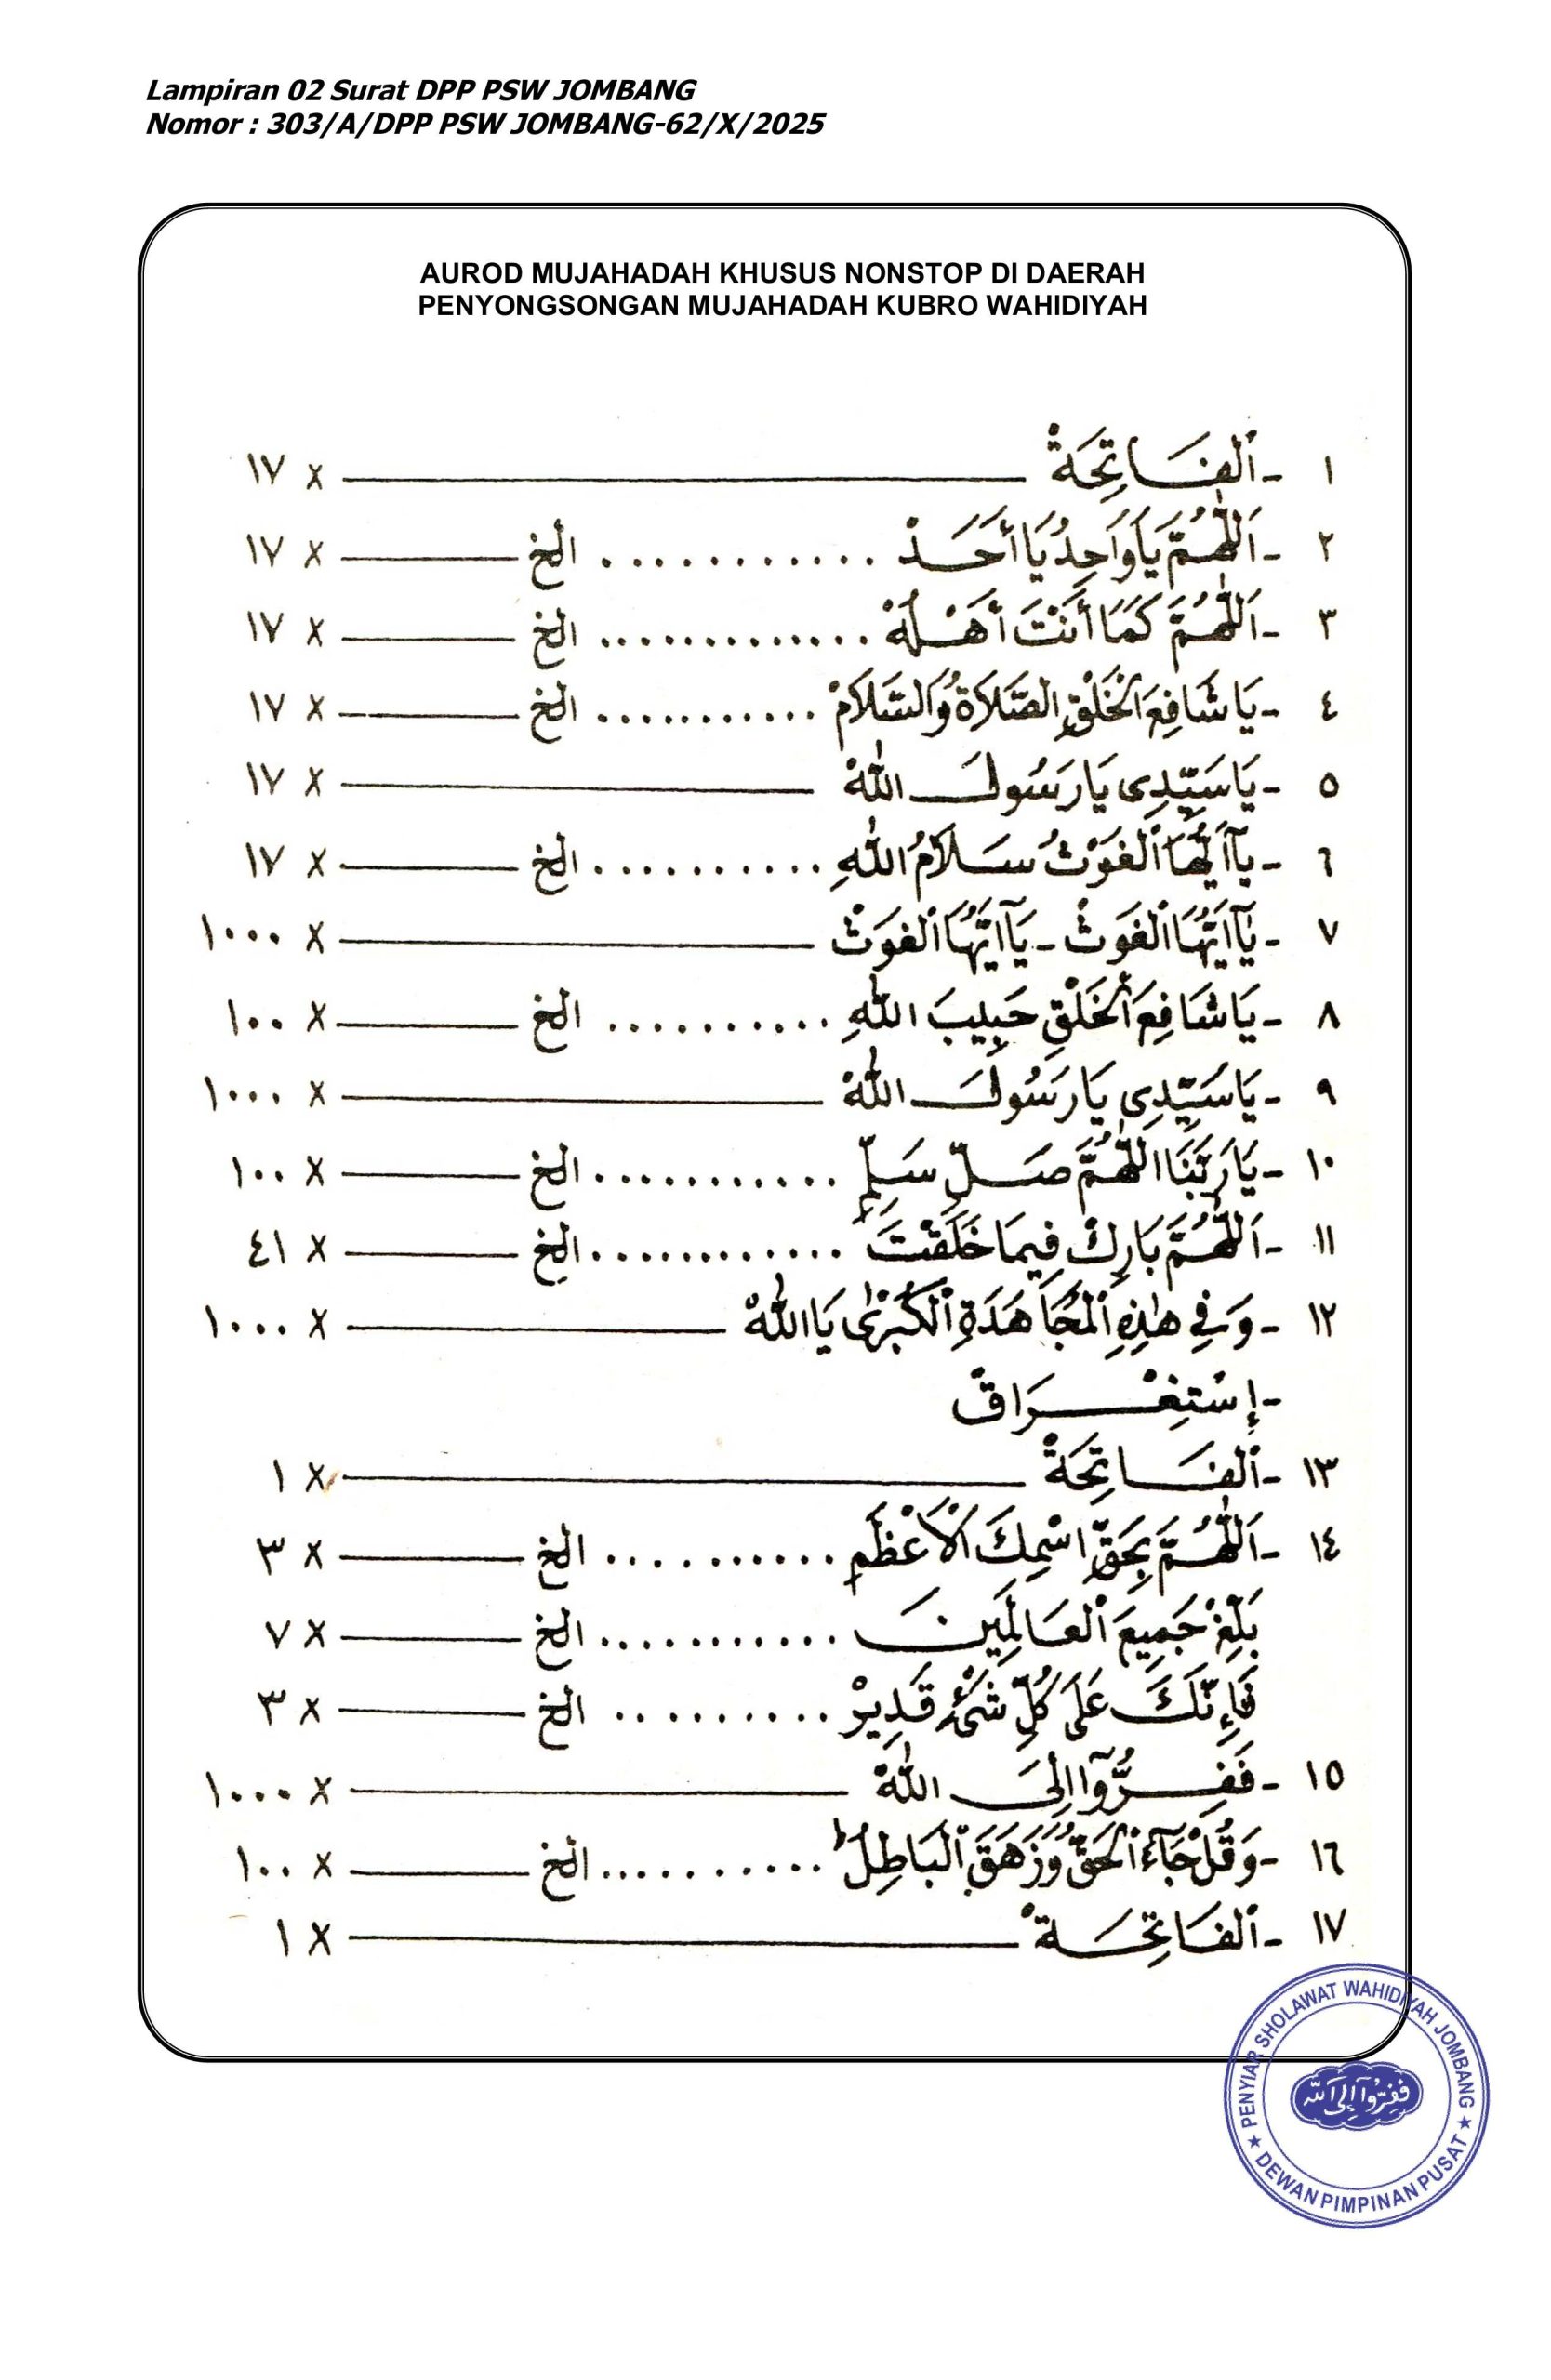 Lampiran 02 Surat DPP PSW JOMBANG
Nomor : 303/A/DPP PSW JOMBANG-62/X/2025
AUROD MUJAHADAH KHUSUS NONSTOP DI DAERAH
PENYONGSONGAN MUJAHADAH KUBRO WAHIDIYAH
١ - اَلْفَاتِحَةْ ــــــ x ١٧
٢ - اَللّٰهُمَّ يَاوَاحِدُ يَاأَحَدْ ........... الخ ــــــ x ١٧
٣ - اَللّٰهُمَّ كَمَا أَنْتَ أَهْلُهْ ............. الخ ــــــ x ١٧
٤ - يَاشَافِعَ الْخَلْقِ الصَّلَاةُ وَالسَّلَامْ ........... الخ ــــــ x ١٧
٥ - يَاسَيِّدِى يَارَسُولَ اللّٰهْ ــــــ x ١٧
٦ - يَآاَيُّهَا الْغَوْثُ سَلَامُ اللّٰهِ ........... الخ ــــــ x ١٧
٧ - يَآاَيُّهَا الْغَوْثْ - يَآاَيُّهَا الْغَوْثْ ــــــ x ١٠٠٠
٨ - يَاشَافِعَ الْخَلْقِ حَبِيبَ اللّٰهِ ........... الخ ــــــ x ١٠٠
٩ - يَاسَيِّدِى يَارَسُولَ اللّٰهْ ــــــ x ١٠٠٠
١٠ - يَارَبَّنَا اللّٰهُمَّ صَلِّ سَلِّمِ ............ الخ ــــــ x ١٠٠
١١ - اَللّٰهُمَّ بَارِكْ فِيمَا خَلَقْتَ ............ الخ ــــــ x ٤١
١٢ - وَفِي هٰذِهِ الْمُجَاهَدَةِ الْكُبْرٰى يَااَللّٰهْ ــــــ x ١٠٠٠
- إِسْتِغْرَاقْ
١٣ - اَلْفَاتِحَةْ ــــــ x ١
١٤ - اَللّٰهُمَّ بِحَقِّ اسْمِكَ الْأَعْظَمِ .......... الخ ــــــ x ٣
بَلِّغْ جَمِيعَ الْعَالَمِينَ ........... الخ ــــــ x ٧
فَإِنَّكَ عَلَى كُلِّ شَىْءٍ قَدِيرْ ......... الخ ــــــ x ٣
١٥ - فَفِرُّوْآ اِلَى اللّٰهْ ــــــ x ١٠٠٠
١٦ - وَقُلْ جَآءَ الْحَقُّ وَزَهَقَ الْبَاطِلُ ......... الخ ــــــ x ١٠٠
١٧ - اَلْفَاتِحَةْ ــــــ x ١
PENYIAR SHOLAWAT WAHIDIYAH JOMBANG
فَفِرُّوْآ إِلَى اللّٰه
★ DEWAN PIMPINAN PUSAT ★